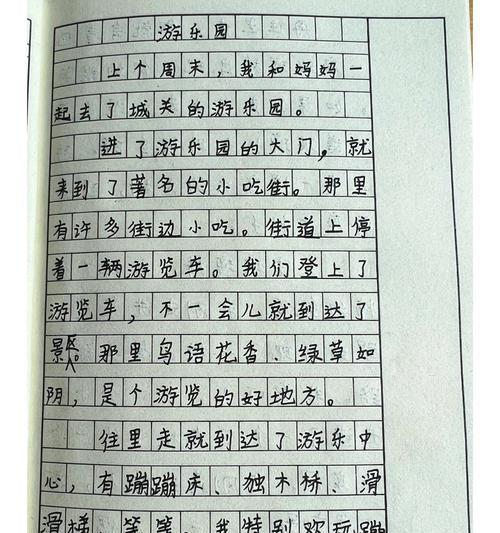 游乐园
上个周末，我和妈妈一
起去了城关的游乐园。
进了游乐园的大门，就
来到了著名的小吃街。那里
有许多街边小吃。街道上停
着一辆游览车。我们登上了
游览车，不一会儿就到达了
景区。那里鸟语花香、绿草如
阴，是个游览的好地方。
往里走就到达了游乐中
心，有蹦蹦床、独木桥、滑
滑梯、等等。我特别欢玩蹦